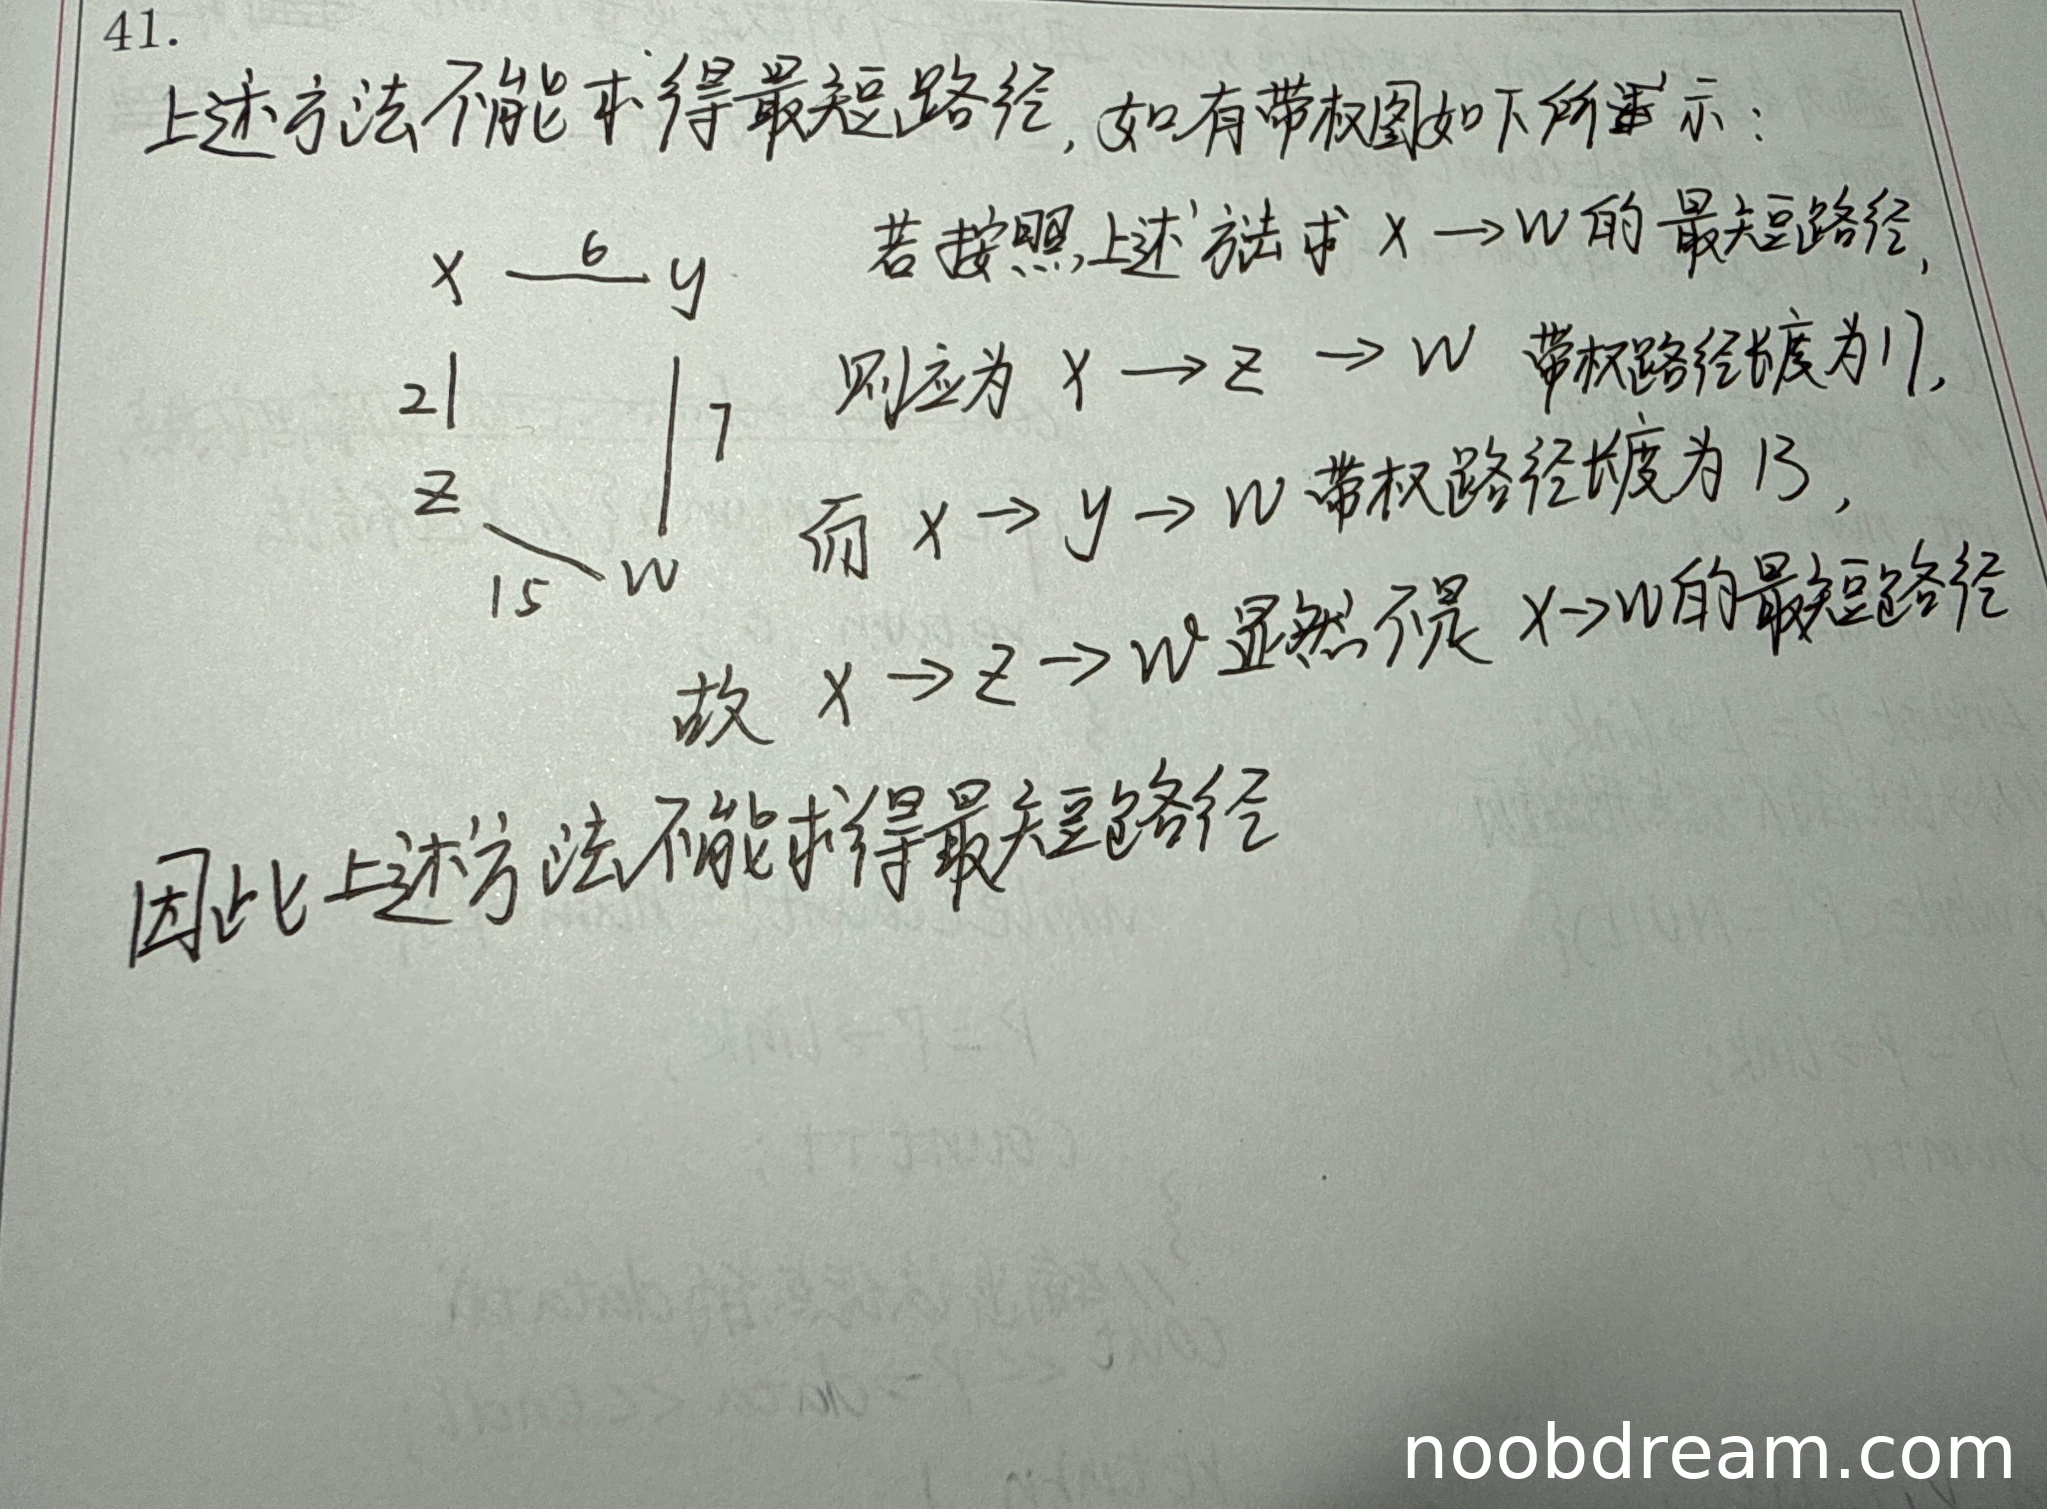 41.
上述方法不能求得最短路径，如有带权图如下所示：
若按照上述方法求 x → w 的最短路径，
x 6 y
则应为 x → z → w 带权路径长度为17，
2
7
z
而 x → y → w 带权路径长度为 13，
15 w
故 x → z → w 显然不是 x → w 的最短路径
因此上述方法不能求得最短路径
noobdream.com